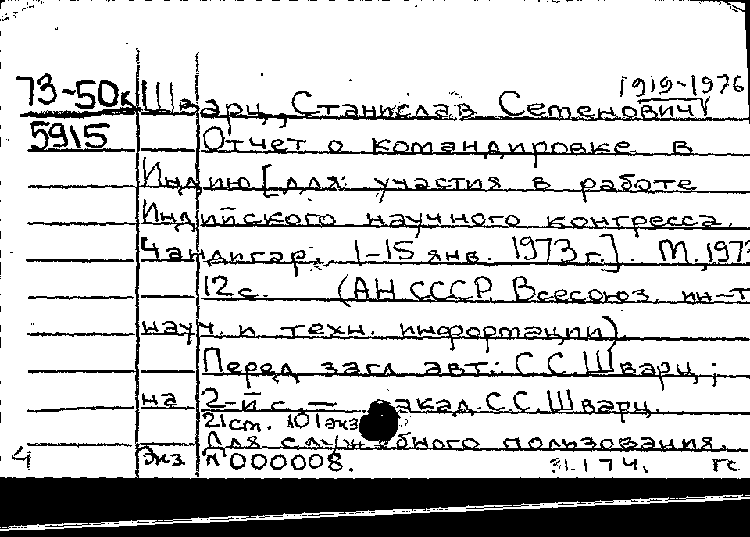 1919-1976
73-50к Шварц, Станислав Семенович
5915 Отчет о командировке в
Индию [для участия в работе
Индийского научного конгресса.
Чандигар, 1-15 янв. 1973 г.]. М., 1973
12 с. (АН СССР. Всесоюз. ин-т
науч. и техн. информации).
Перед загл. авт.: С.С. Шварц;
на 2-й с. — акад. С.С. Шварц.
21 см. 101 экз
Для служебного пользования.
4 Экз N 000008. 31.1.74. гс